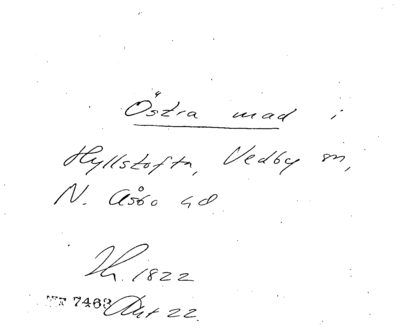 Östra mad i
Hyllstofta, Vedby sn,
N. Åsbo hd
1822
7463 Akt 22